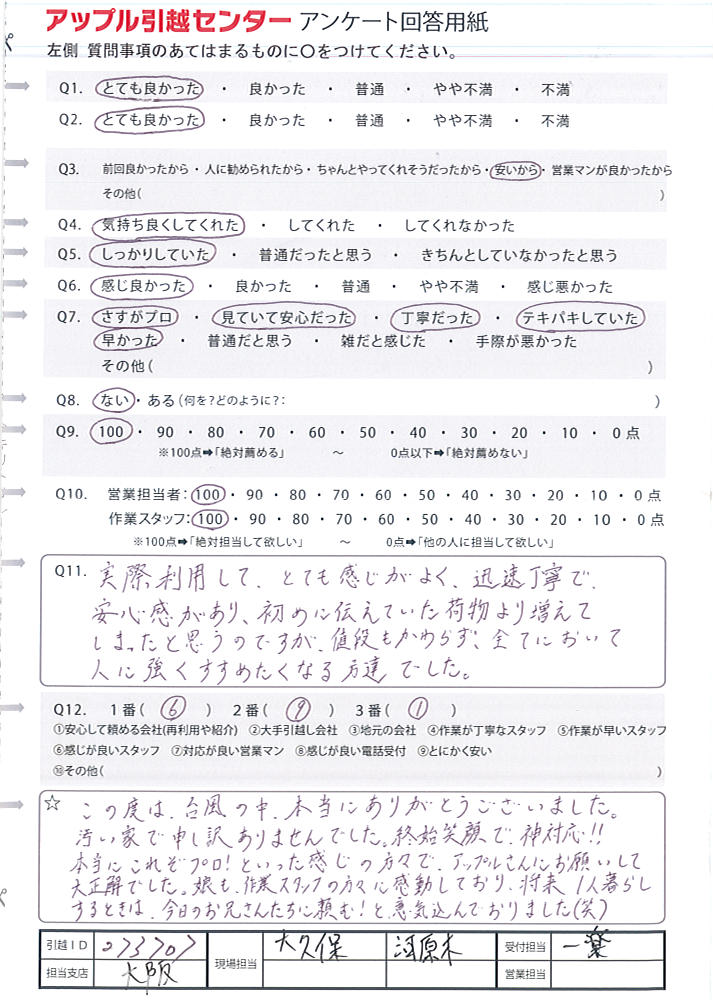 アップル引越センター アンケート回答用紙
左側 質問事項のあてはまるものに〇をつけてください。
Q1. とても良かった ・ 良かった ・ 普通 ・ やや不満 ・ 不満
Q2. とても良かった ・ 良かった ・ 普通 ・ やや不満 ・ 不満
Q3. 前回良かったから・人に勧められたから・ちゃんとやってくれそうだったから・安いから・営業マンが良かったから
その他( )
Q4. 気持ち良くしてくれた ・ してくれた ・ してくれなかった
Q5. しっかりしていた ・ 普通だったと思う ・ きちんとしていなかったと思う
Q6. 感じ良かった ・ 良かった ・ 普通 ・ やや不満 ・ 感じ悪かった
Q7. さすがプロ ・ 見ていて安心だった ・ 丁寧だった ・ テキパキしていた
早かった ・ 普通だと思う ・ 雑だと感じた ・ 手際が悪かった
その他( )
Q8. ない・ある(何を?どのように?: )
Q9. 100・90・80・70・60・50・40・30・20・10・0点
※100点➡「絶対薦める」 〜 0点以下➡「絶対薦めない」
Q10. 営業担当者:100・90・80・70・60・50・40・30・20・10・0点
作業スタッフ:100・90・80・70・60・50・40・30・20・10・0点
※100点➡「絶対担当して欲しい」 〜 0点➡「他の人に担当して欲しい」
Q11. 実際利用して、とても感じがよく、迅速丁寧で、
安心感があり、初めに伝えていた荷物より増えて
しまったと思うのですが、値段もかわらず、全てにおいて
人に強くすすめたくなる方達でした。
Q12. 1番( ⑥ ) 2番( ⑨ ) 3番( ① )
①安心して頼める会社(再利用や紹介) ②大手引越し会社 ③地元の会社 ④作業が丁寧なスタッフ ⑤作業が早いスタッフ
⑥感じが良いスタッフ ⑦対応が良い営業マン ⑧感じが良い電話受付 ⑨とにかく安い
⑩その他( )
☆ この度は、台風の中、本当にありがとうございました。
汚い家で申し訳ありませんでした。終始笑顔で、神対応!!
本当にこれぞプロ!といった感じの方々で、アップルさんにお願いして
大正解でした。娘も、作業スタッフの方々に感動しており、将来1人暮らし
するときは、今日のお兄さんたちに頼む!と、意気込んでおりました(笑)
引越ID 073707 現場担当 大久保 河原木 受付担当 一楽
担当支店 大阪 営業担当